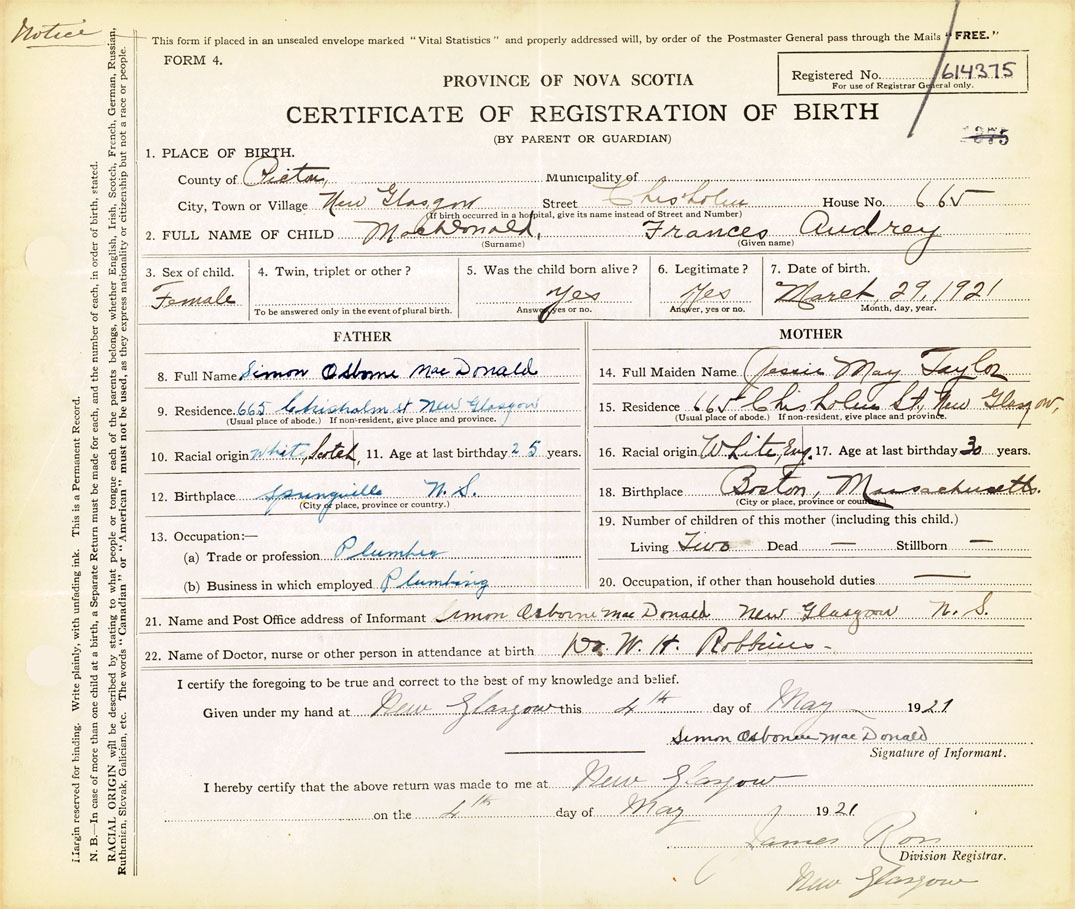 Notice
This form if placed in an unsealed envelope marked "Vital Statistics" and properly addressed will, by order of the Postmaster General pass through the Mails "FREE."
FORM 4.
Registered No. 614375
For use of Registrar General only.
PROVINCE OF NOVA SCOTIA
CERTIFICATE OF REGISTRATION OF BIRTH
(BY PARENT OR GUARDIAN)
1. PLACE OF BIRTH.
County of Pictou, Municipality of
City, Town or Village New Glasgow Street Chisholm House No. 665
(If birth occurred in a hospital, give its name instead of Street and Number)
2. FULL NAME OF CHILD MacDonald, Frances Audrey
(Surname) (Given name)
3. Sex of child. 4. Twin, triplet or other? 5. Was the child born alive? 6. Legitimate? 7. Date of birth.
Female Yes Yes March, 29, 1921
To be answered only in the event of plural birth. Answer, yes or no. Answer, yes or no. Month, day, year.
FATHER
8. Full Name Simon Osborne MacDonald
9. Residence 665 Chisholm st New Glasgow
(Usual place of abode.) If non-resident, give place and province.
10. Racial origin White, Scotch, 11. Age at last birthday 25 years.
12. Birthplace Springville N. S.
(City or place, province or country.)
13. Occupation:—
(a) Trade or profession Plumber
(b) Business in which employed Plumbing
MOTHER
14. Full Maiden Name Jessie May Taylor
15. Residence 665 Chisholm St, New Glasgow,
(Usual place of abode.) If non-resident, give place and province.
16. Racial origin White, Eng. 17. Age at last birthday 30 years.
18. Birthplace Boston, Massachusetts.
(City or place, province or country.)
19. Number of children of this mother (including this child.)
Living Two Dead — Stillborn —
20. Occupation, if other than household duties —
21. Name and Post Office address of Informant Simon Osborne MacDonald New Glasgow N. S.
22. Name of Doctor, nurse or other person in attendance at birth Dr. W. H. Robbins -
I certify the foregoing to be true and correct to the best of my knowledge and belief.
Given under my hand at New Glasgow this 4th day of May 1921
Simon Osborne MacDonald
Signature of Informant.
I hereby certify that the above return was made to me at New Glasgow
on the 4th day of May 1921
James Ross
Division Registrar.
New Glasgow
Margin reserved for binding. Write plainly, with unfading ink. This is a Permanent Record.
N. B.—In case of more than one child at a birth, a Separate Return must be made for each, and the number of each, in order of birth, stated.
RACIAL ORIGIN will be described by stating to what people or tongue each of the parents belongs, whether English, Irish, Scotch, French, German, Russian,
Ruthenian, Slovak, Galician, etc. The words "Canadian" or "American" must not be used, as they express nationality or citizenship but not a race or people.